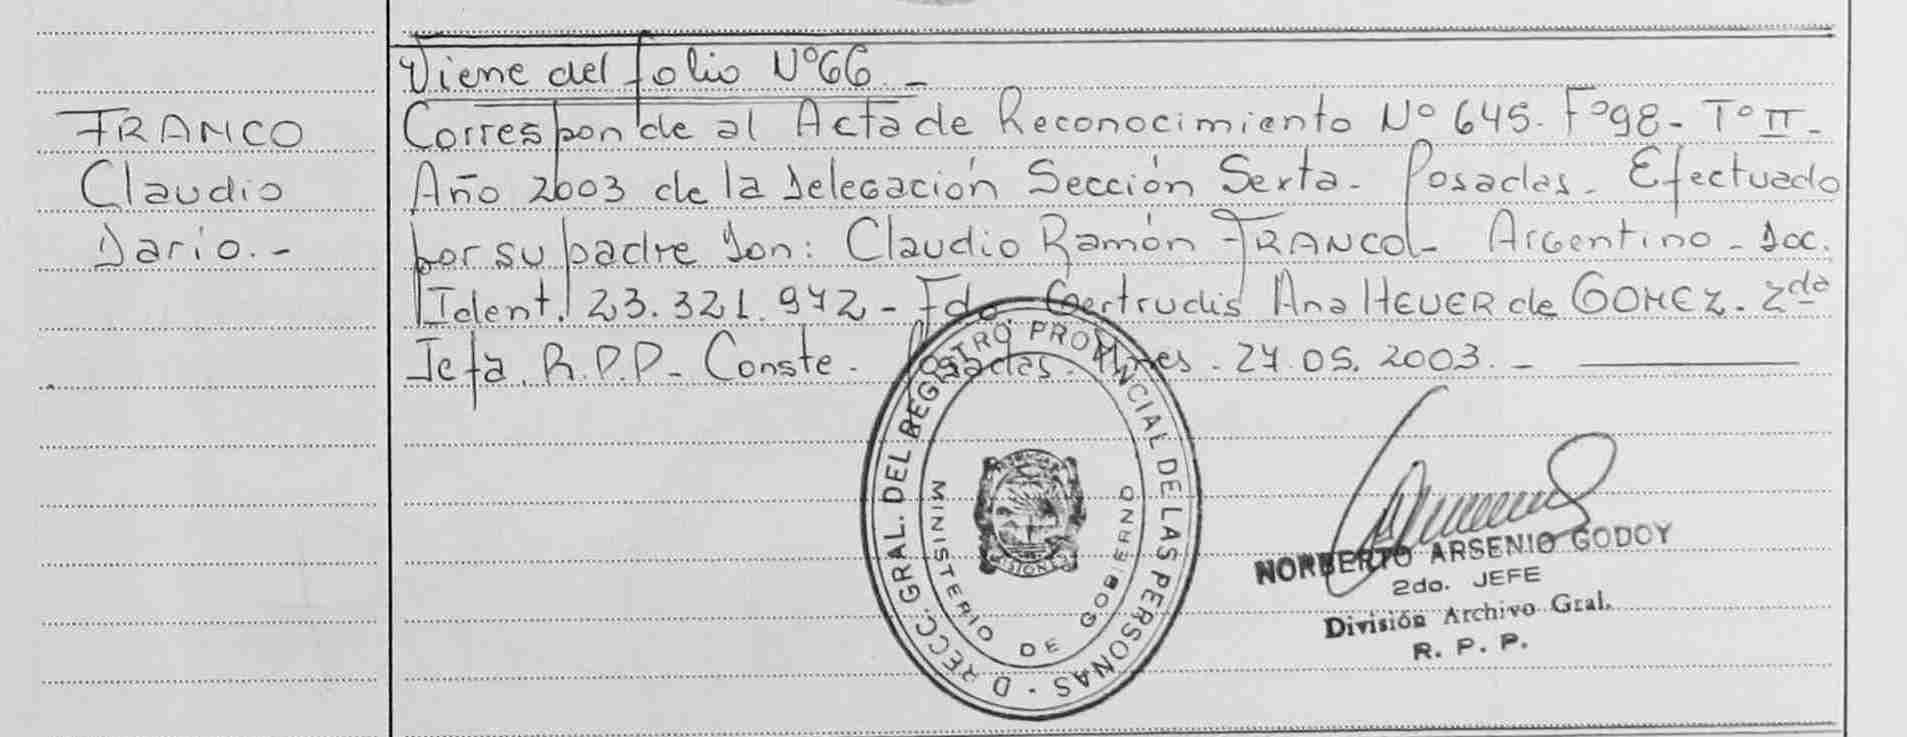 Viene del folio Nº66.-
FRANCO
Claudio
Dario.-
Corresponde al Acta de Reconocimiento Nº 645. Fº98- Tº II-
Año 2003 de la Delegación Sección Sexta. Posadas. Efectuado
por su padre Don: Claudio Ramón FRANCO- Argentino- Doc.
Ident. 23.321.972- Fdo. Gertrudis Ana HEUER de GOMEZ. 2da
Jefa. R.P.P- Conste. Posadas. Mnes. 27.05.2003.-
DIRECC. GRAL. DEL REGISTRO PROVINCIAL DE LAS PERSONAS -
MINISTERIO DE GOBIERNO
MISIONES
NORBERTO ARSENIO GODOY
2do. JEFE
División Archivo Gral.
R. P. P.